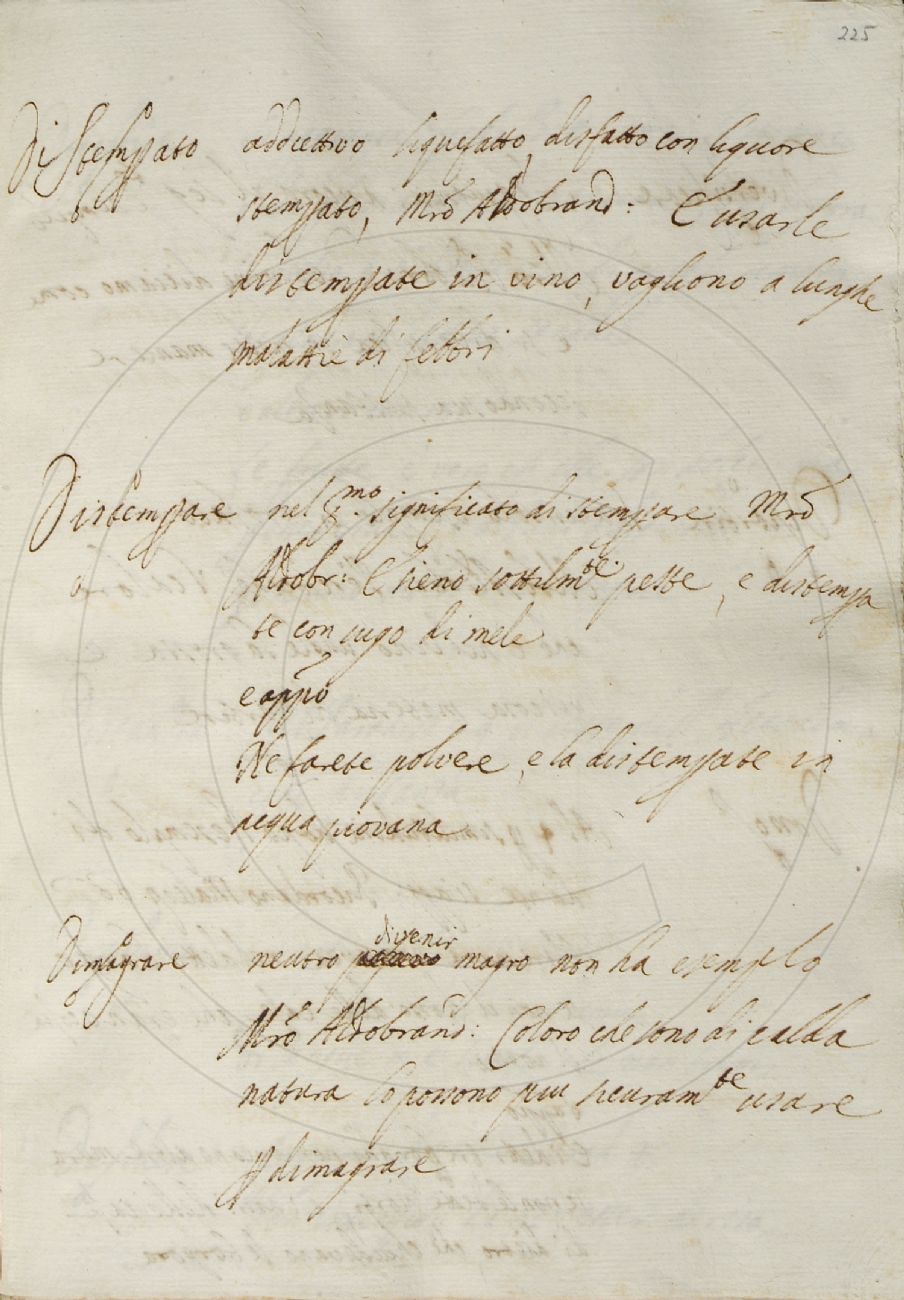 225
Distemperato addiettivo liquefatto, disfatto con liquore
stemperato, Mrõ Aldobrand: E usarle
distemperate in vino, vagliono a lunghe
malattie di febbri
Distemperare nel pmo. significato di stemperare Mrõ
Aldobr: E sieno sottilmte peste, e distempera
te con sugo di mele
e appõ
Ne farete polvere, e la distemperate in
acqua piovana
Dimagrare neutro divenir magro non ha esemplo
Mrõ Aldobrand: Coloro che sono di calda
natura lo possono piu sicuramte usare
p dimagrare